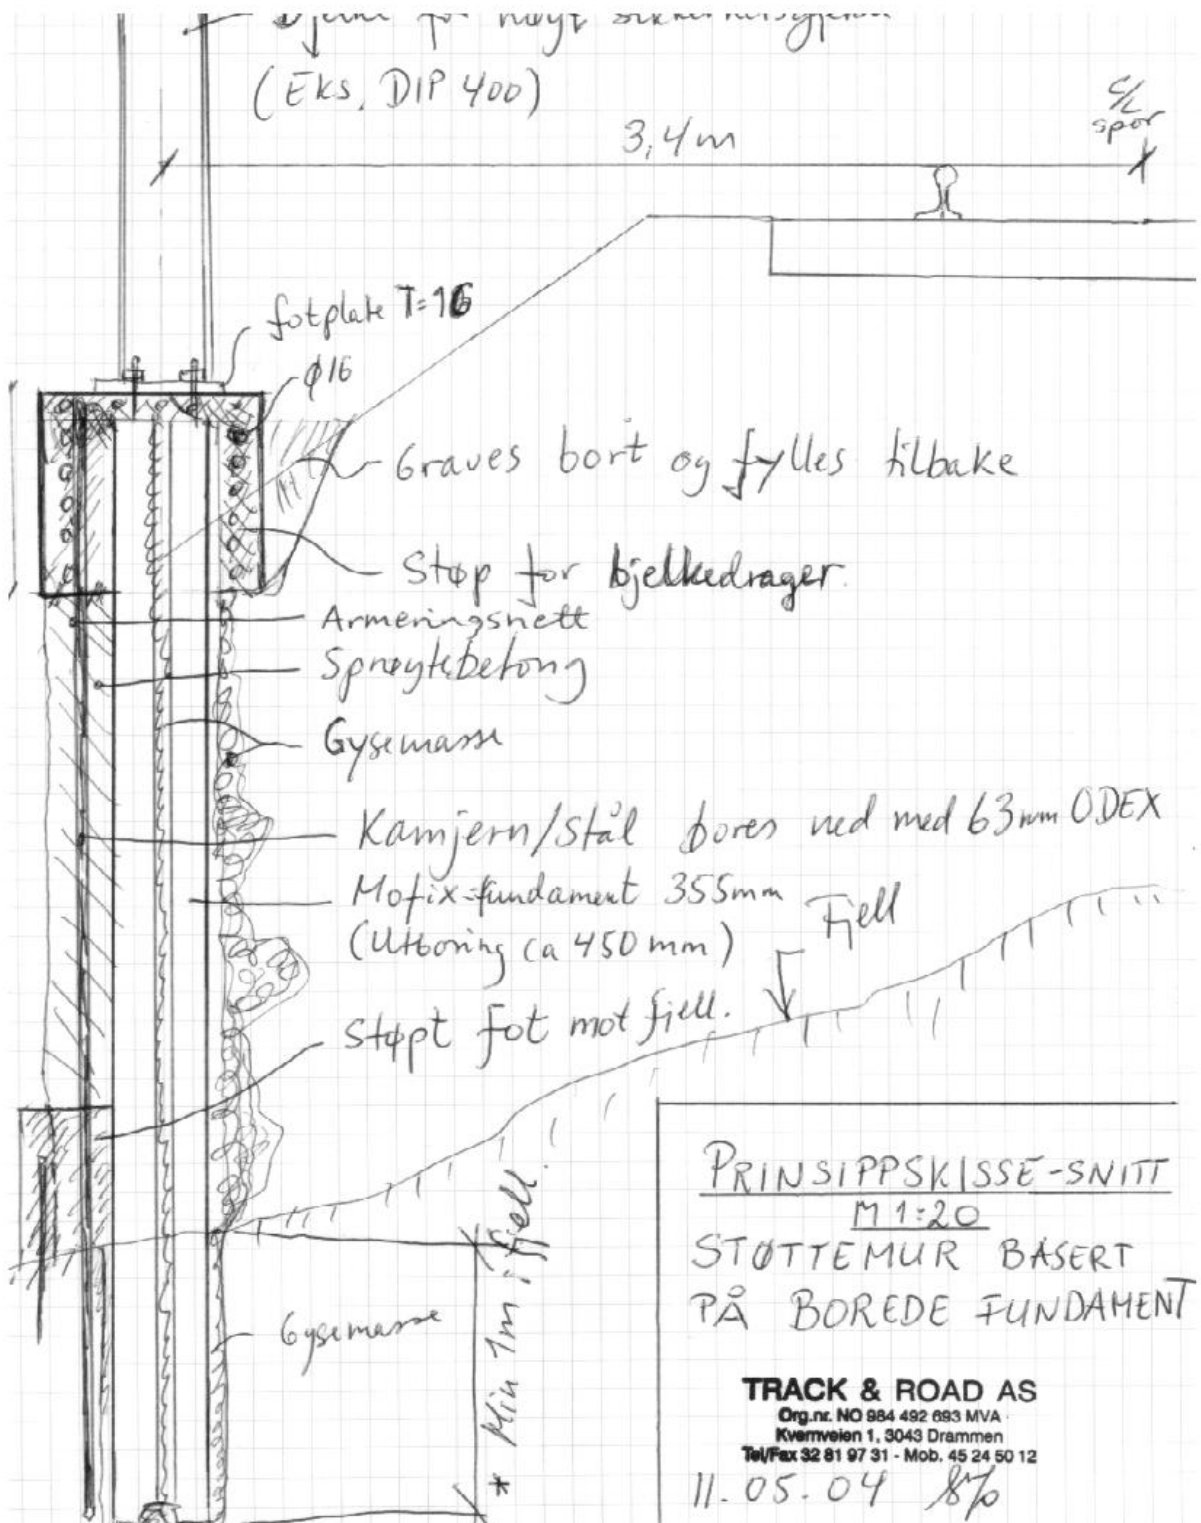 Bjelke for høyt sikkerhetsgjerde
(EKS. DIP 400)
3,4m
C/L
spor
fotplate T=16
φ16
Graves bort og fylles tilbake
Støp for bjelkedrager.
Armeringsnett
Sprøytebetong
Gysemasse
Kamjern/stål bores ned med 63mm ODEX
Mofix-fundament 355mm
(Utboring ca 450 mm)
Fjell
Støpt fot mot fjell.
Gysemasse
* Min 1m i fjell.
PRINSIPPSKISSE-SNITT
M 1:20
STØTTEMUR BASERT
PÅ BOREDE FUNDAMENT
TRACK & ROAD AS
Org.nr. NO 984 492 693 MVA
Kvernveien 1, 3043 Drammen
Tel/Fax 32 81 97 31 - Mob. 45 24 50 12
11.05.04